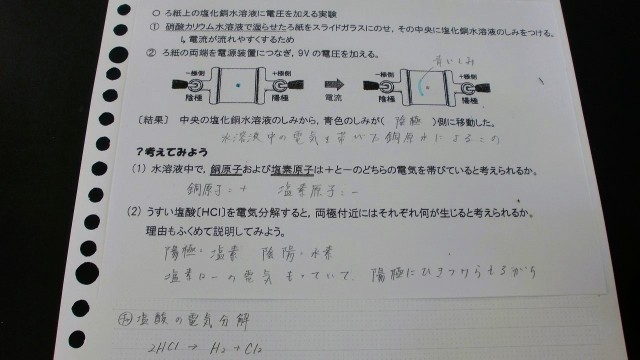 ○ ろ紙上の塩化銅水溶液に電圧を加える実験
① 硝酸カリウム水溶液で湿らせたろ紙をスライドガラスにのせ、その中央に塩化銅水溶液のしみをつける。
電流が流れやすくするため
② ろ紙の両端を電源装置につなぎ、9Vの電圧を加える。
青いしみ
－極側 ＋極側 －極側 ＋極側
陰極 陽極 電流 陰極 陽極
〔結果〕 中央の塩化銅水溶液のしみから、青色のしみが( 陰極 )側に移動した。
水溶液中の電気を帯びた銅原子によるもの
？考えてみよう
(1) 水溶液中で、銅原子および塩素原子は＋と－のどちらの電気を帯びていると考えられるか。
銅原子＝＋ 塩素原子＝－
(2) うすい塩酸〔HCl〕を電気分解すると、両極付近にはそれぞれ何が生じると考えられるか。
理由もふくめて説明してみよう。
陽極・塩素 陰陽・水素
塩素は－の電気をもっていて、陽極にひきつけられるから
塩酸の電気分解
2HCl → H2 + Cl2